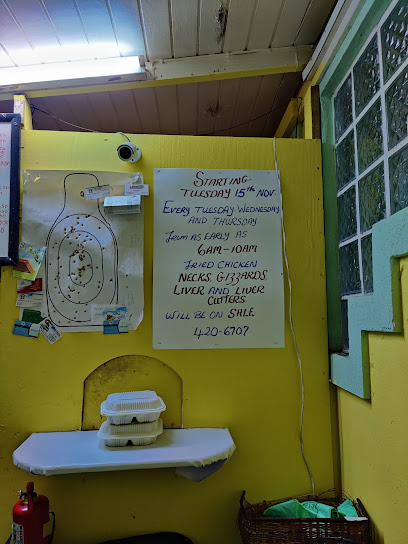 STARTING
TUESDAY 15TH NOV.
EVERY TUESDAY WEDNESDAY
AND THURSDAY
FROM AS EARLY AS
6AM-10AM
FRIED CHICKEN
NECKS, GIZZARDS,
LIVER AND LIVER
CUTTERS
WILL BE ON SALE
420-6707